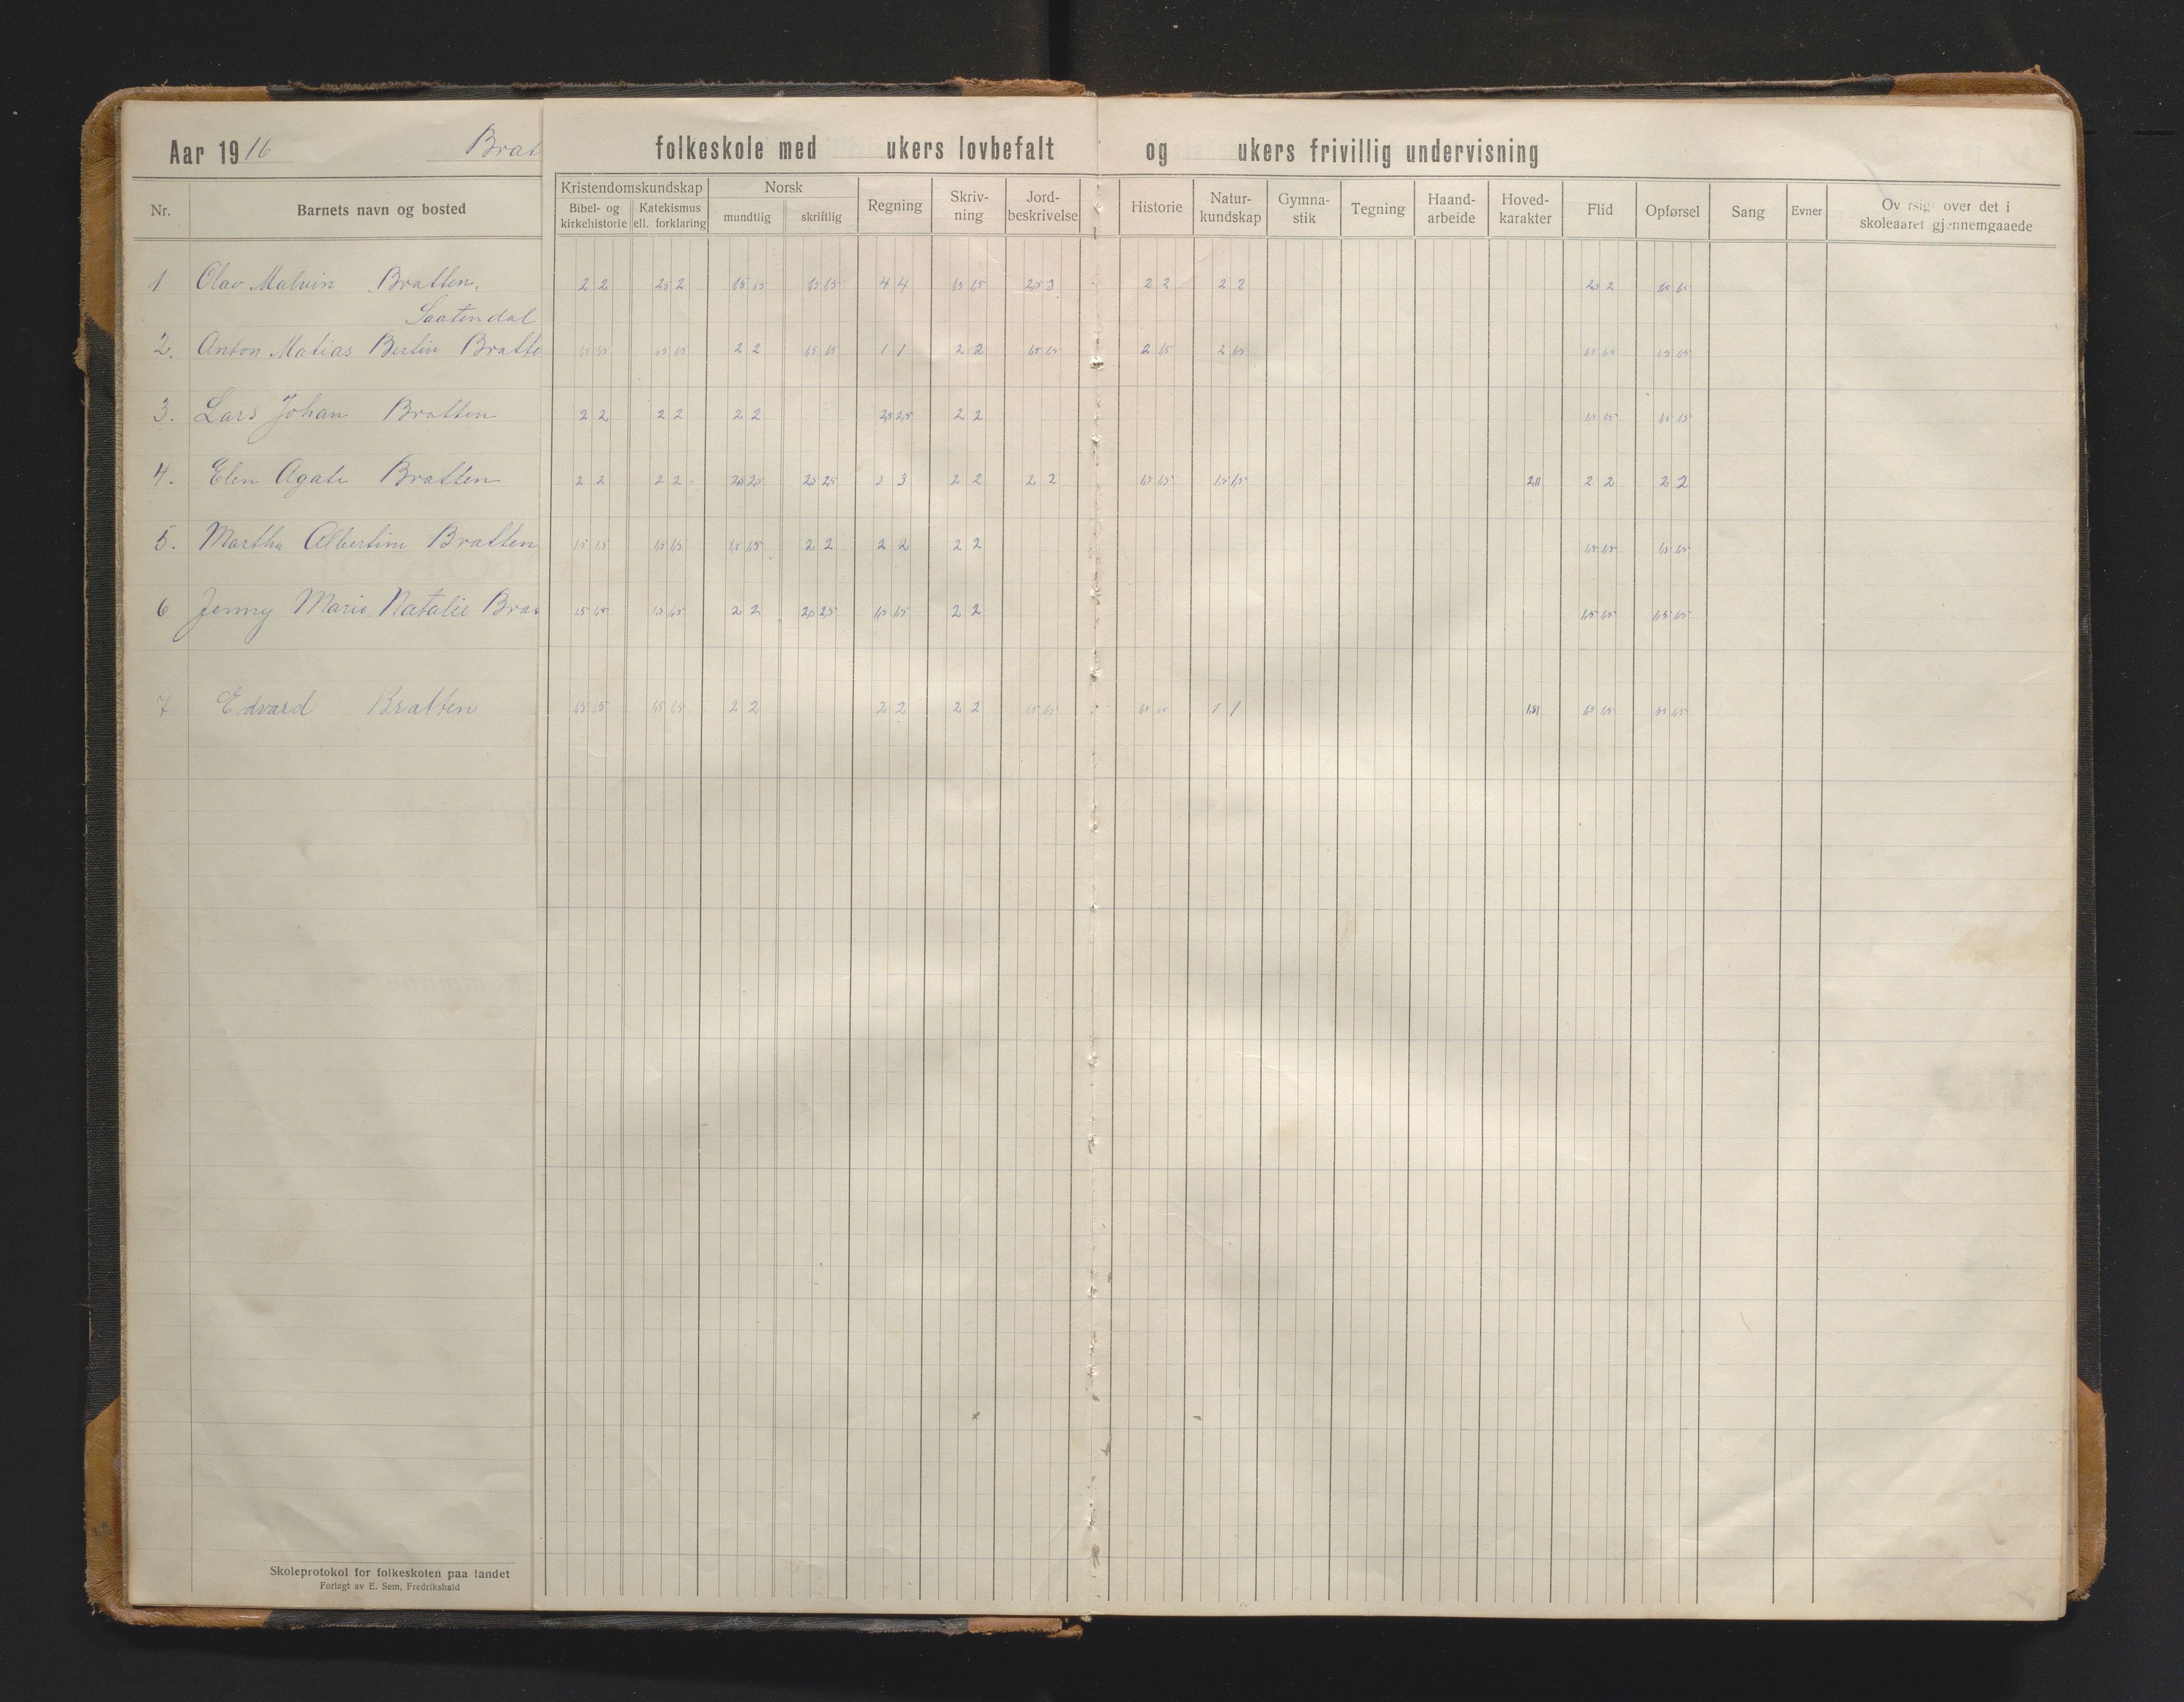 Aar 1916 Brat folkeskole med ukers lovbefalt og ukers frivillig undervisning
Nr. Barnets navn og bosted Kristendomskundskap Bibel- og kirkehistorie Katekismus ell. forklaring Norsk mundtlig skriftlig Regning Skriv-ning Jord-beskrivelse Historie Natur-kundskap Gymna-stik Tegning Haand-arbeide Hoved-karakter Flid Opførsel Sang Evner Ov rsig over det i skoleaaret gjennemgaaede
1 Olav Malvin Bratten, 2 2 2,5 2 1,5 1,5 1,5 1,5 4 4 1,5 1,5 2,5 3 2 2 2 2 2,5 2 1,5 1,5
Saatendal
2. Anton Matias Bertin Bratte 1,5 1,5 1,5 1,5 2 2 1,5 1,5 1 1 2 2 1,5 1,5 2 1,5 2 1,5 1,5 1,5 1,5 1,5
3. Lars Johan Bratten 2 2 2 2 2 2 2,5 2,5 2 2 1,5 1,5 1,5 1,5
4. Elen Agate Bratten 2 2 2 2 2,5 2,5 2,5 2,5 3 3 2 2 2 2 1,5 1,5 1,5 1,5 2,11 2 2 2 2
5. Martha Albertine Bratten 1,5 1,5 1,5 1,5 1,5 1,5 2 2 2 2 2 2 1,5 1,5 1,5 1,5
6 Jenny Marie Natalie Brat 1,5 1,5 1,5 1,5 2 2 2,5 2,5 1,5 1,5 2 2 1,5 1,5 1,5 1,5
7 Edvard Bratten 1,5 1,5 1,5 1,5 2 2 2 2 2 2 1,5 1,5 1,5 1,5 1 1 1,5 1,5 1,5 1,5
Skoleprotokol for folkeskolen paa landet
Forlagt av E. Sem, Fredrikshald